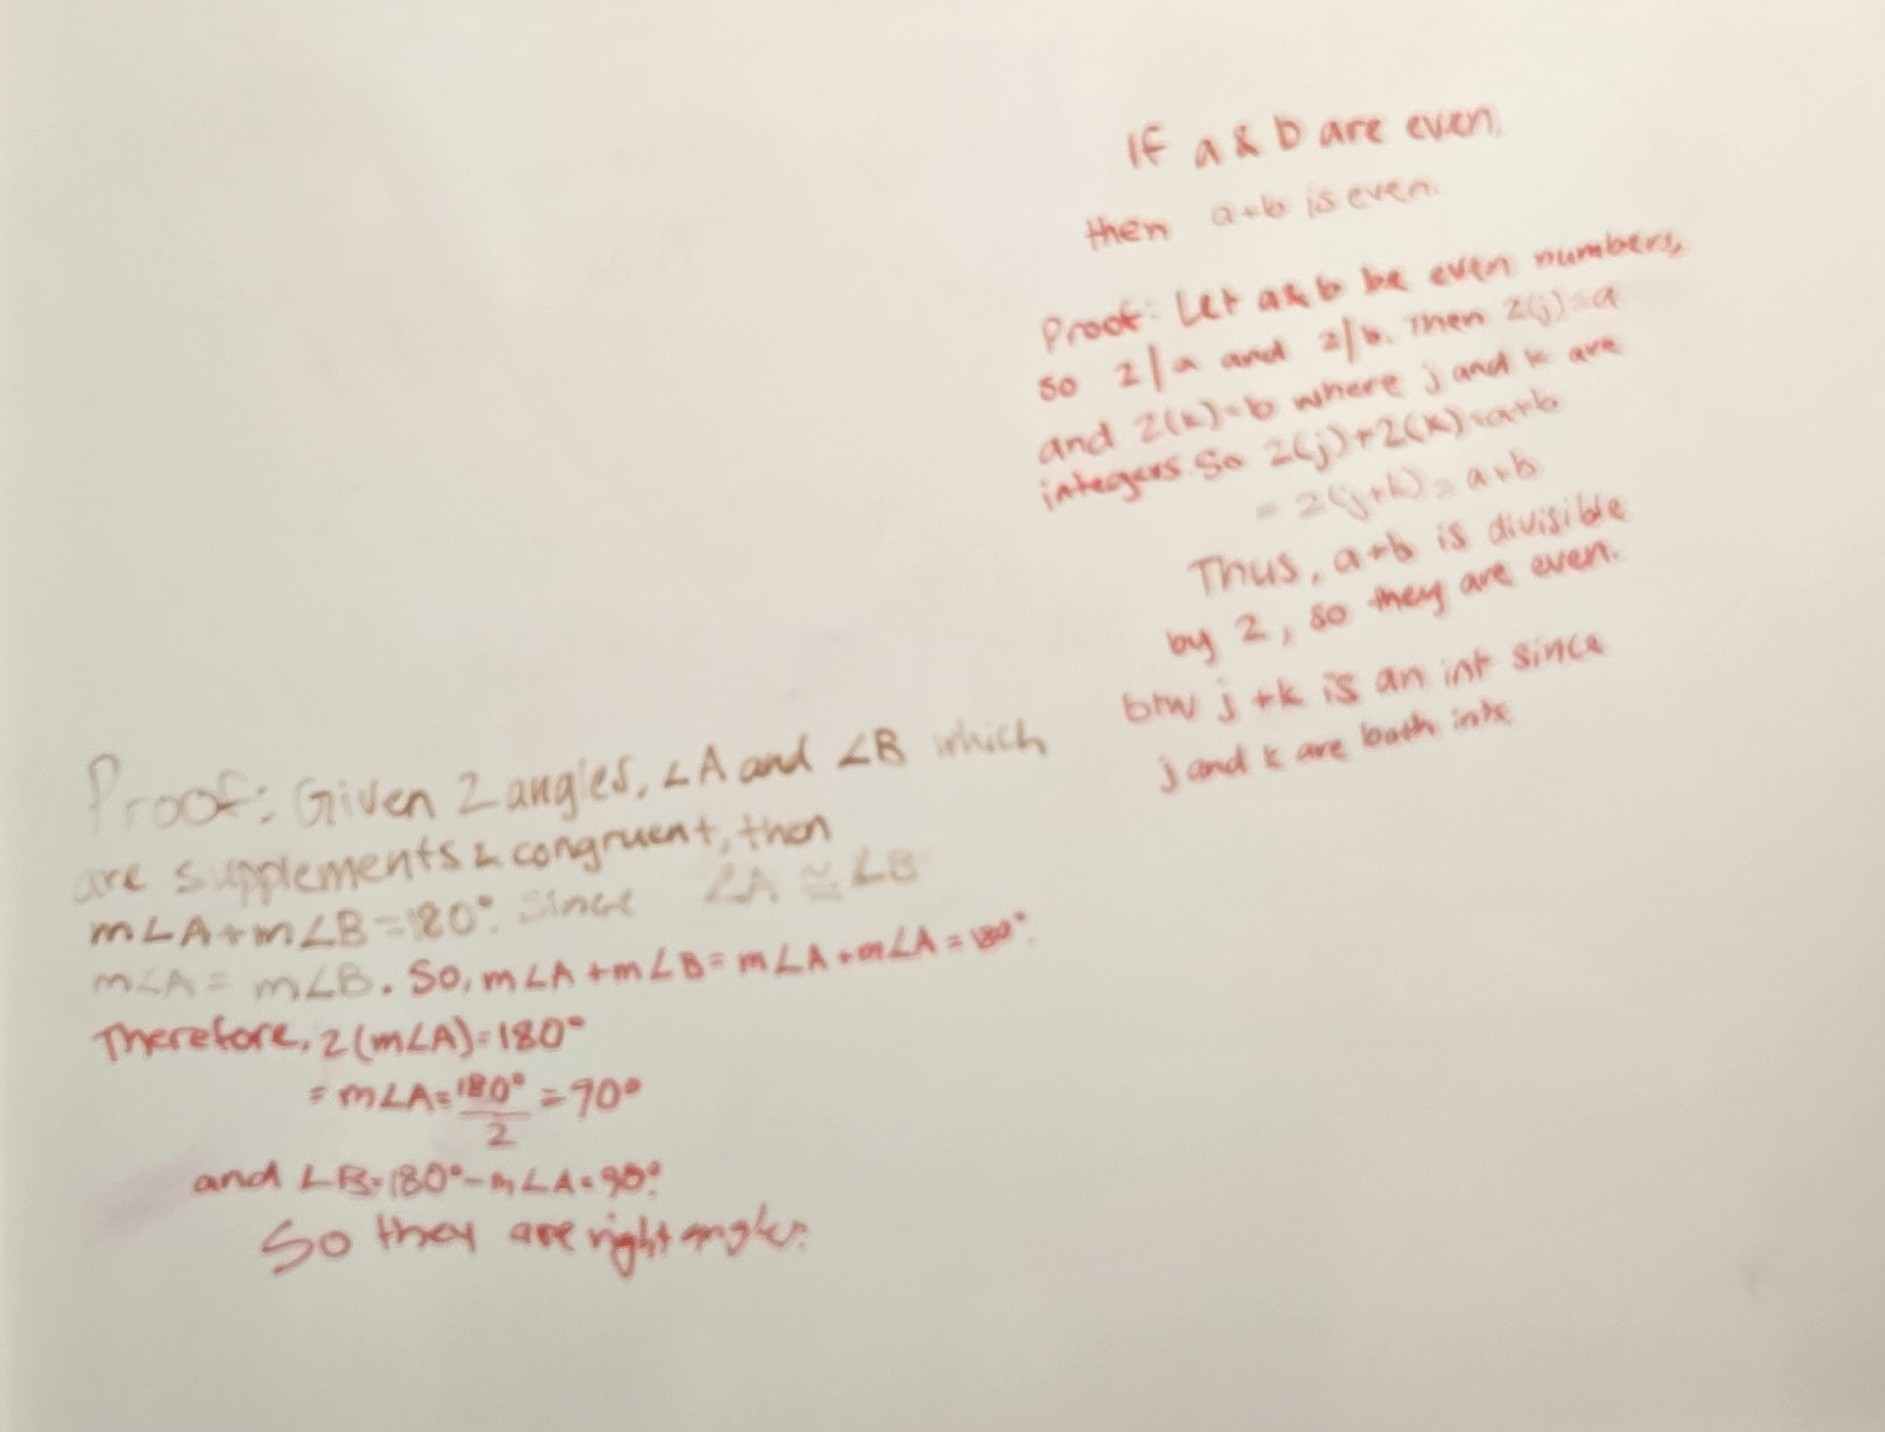 If a & b are even,
then a+b is even.
Proof: Let a & b be even numbers,
so 2|a and 2|b. Then 2(j)=a
and 2(k)=b where j and k are
integers. So 2(j)+2(k)=a+b
= 2(j+k)=a+b
Thus, a+b is divisible
by 2, so they are even.
btw j+k is an int since
j and k are both ints.
Proof: Given 2 angles, ∠A and ∠B which
are supplements & congruent, then
m∠A+m∠B=180°. Since ∠A ≅ ∠B
m∠A = m∠B. So, m∠A + m∠B = m∠A + m∠A = 180°.
Therefore, 2(m∠A)=180°
= m∠A = 180°/2 = 90°
and ∠B=180°-m∠A=90°.
So they are right angles.